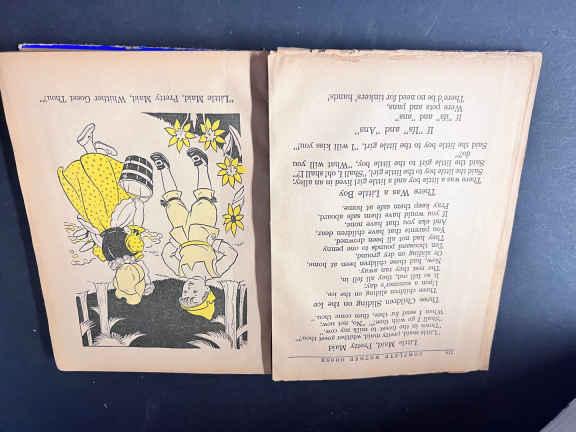 COMPLETE MOTHER GOOSE
Little Maid, Pretty Maid
"Little maid, pretty maid, whither goest thou?"
"Down in the forest to milk my cow."
"Shall I go with thee?" "No, not now;
When I send for thee, then come thou."
Three Children Sliding on the Ice
Three children sliding on the ice,
Upon a summer's day;
It so fell out, they all fell in,
The rest they ran away.
Now, had those children been at home,
Or sliding on dry ground,
Ten thousand pounds to one penny
They had not all been drowned.
You parents that have children dear,
And eke you that have none,
If you would have them safe abroad,
Pray keep them safe at home.
There Was a Little Boy
There was a little boy and a little girl lived in an alley;
Said the little boy to the little girl, "Shall I, oh! shall I?"
Said the little girl to the little boy, "What will you
do?"
Said the little boy to the little girl, "I will kiss you!"
If "Ifs" and "Ans"
If "ifs" and "ans"
Were pots and pans,
There'd be no need for tinkers' hands!
"Little Maid, Pretty Maid, Whither Goest Thou?"